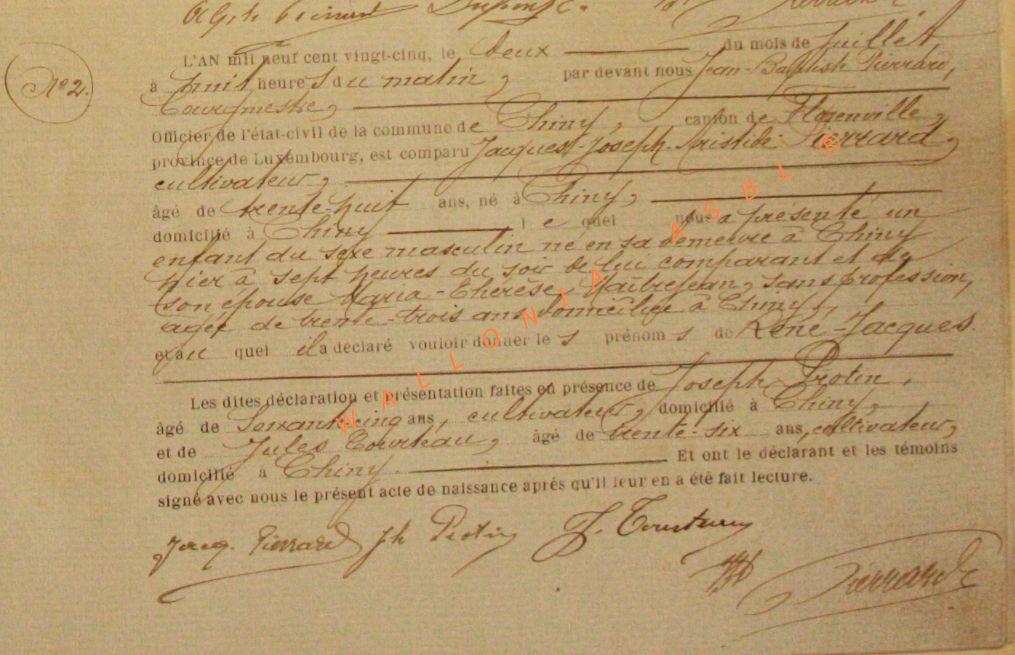 Dupont.
N°2.
L'AN mil neuf cent vingt-cinq, le deux du mois de Juillet
à huit heure s du matin, par devant nous Jean-Baptiste Pierrard,
Bourgmestre,
Officier de l'état-civil de la commune de Chiny, canton de Florenville,
province de Luxembourg, est comparu Jacques-Joseph-Aristide Pierrard,
cultivateur,
âgé de trente-huit ans, né à Chiny,
domicilié à Chiny le quel nous a présenté un
enfant du sexe masculin né en sa demeure à Chiny
hier à sept heures du soir de lui comparant et de
son épouse Maria-Thérèse Maitrejean, sans profession,
agée de trente-trois ans domiciliée à Chiny,
et au quel il a déclaré vouloir donner le s prénom s de René-Jacques
Les dites déclaration et présentation faites en présence de Joseph Protin,
âgé de Soixante cinq ans, cultivateur, domicilié à Chiny,
et de Jules Courteau, âgé de trente-six ans, cultivateur,
domicilié à Chiny. Et ont le déclarant et les témoins
signé avec nous le présent acte de naissance après qu'il leur en a été fait lecture.
Jacq. Pierrard Jh Protin J.
Pierrard
WALLONIA ASBL